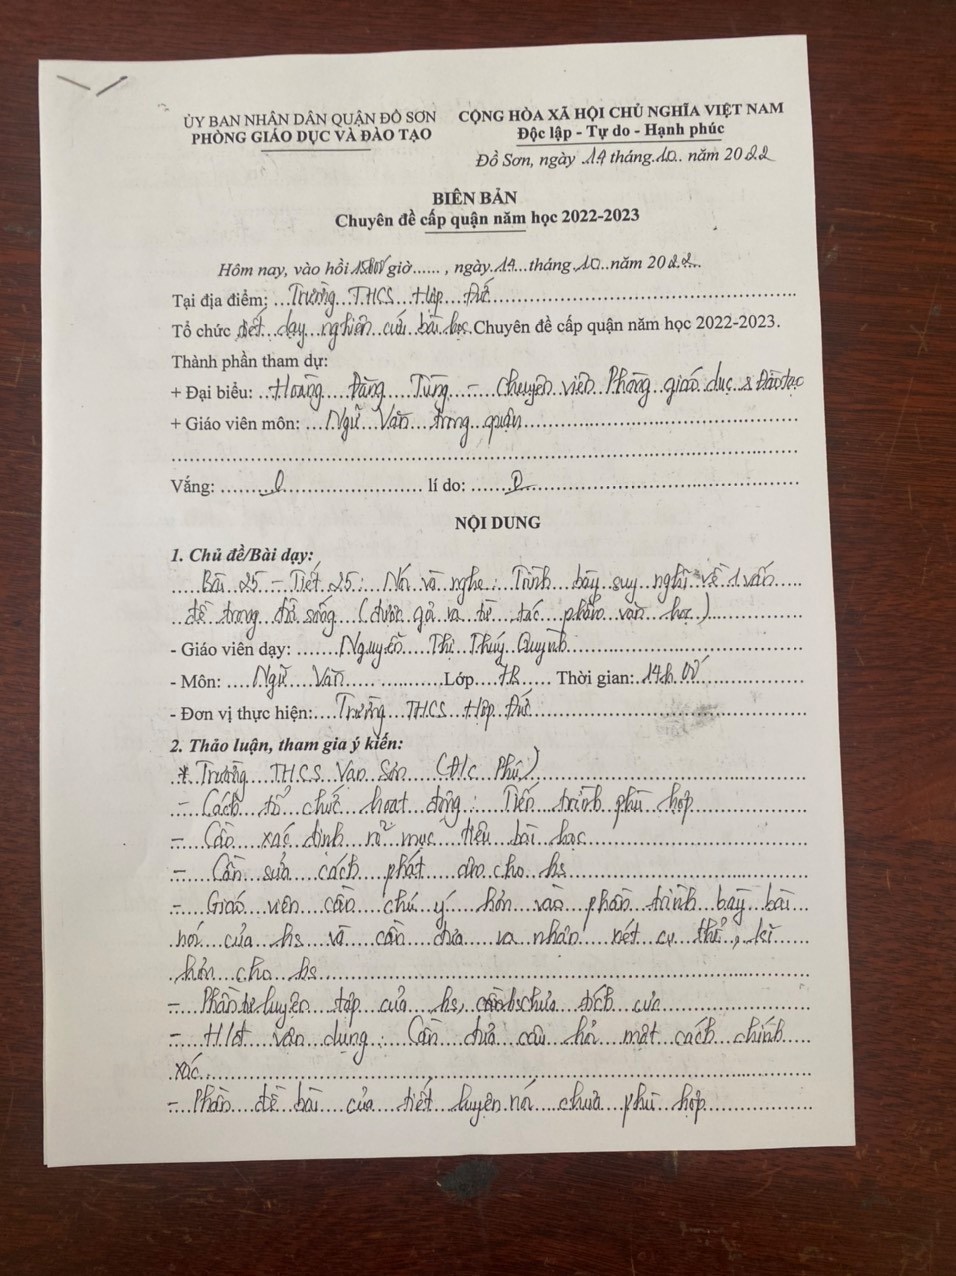 ỦY BAN NHÂN DÂN QUẬN ĐỒ SƠN
PHÒNG GIÁO DỤC VÀ ĐÀO TẠO
CỘNG HÒA XÃ HỘI CHỦ NGHĨA VIỆT NAM
Độc lập - Tự do - Hạnh phúc
Đồ Sơn, ngày 19 tháng 10 năm 2022
BIÊN BẢN
Chuyên đề cấp quận năm học 2022-2023
Hôm nay, vào hồi giờ......, ngày 19 tháng 10 năm 2022
Tại địa điểm: Trường THCS Hợp Đức
Tổ chức tiết dạy nghiên cứu bài học Chuyên đề cấp quận năm học 2022-2023.
Thành phần tham dự:
+ Đại biểu: Hoàng Đăng Tùng - Chuyên viên Phòng giáo dục & Đào tạo
+ Giáo viên môn: Ngữ Văn trong quận
Vắng: 0 lí do: 0
NỘI DUNG
1. Chủ đề/Bài dạy:
Bài 25 - Tiết 25: Nói và nghe: Trình bày suy nghĩ về 1 vấn
đề trong đời sống (được gợi ra từ tác phẩm văn học)
- Giáo viên dạy: Nguyễn Thị Thúy Quỳnh
- Môn: Ngữ Văn Lớp Thời gian: 14h00'
- Đơn vị thực hiện: Trường THCS Hợp Đức
2. Thảo luận, tham gia ý kiến:
* Trường THCS Vạn Sơn (Đ/c Phú)
- Cách tổ chức hoạt động: Tiến trình phù hợp
- Cần xác định rõ mục tiêu bài học
- Cần sửa cách phát âm cho hs
- Giáo viên cần chú ý hơn vào phần trình bày bài
nói của hs và cần đưa ra nhận xét cụ thể, kĩ
hơn cho hs
- Phần tự luyện tập của hs, chưa tích cực
- HĐ vận dụng: Cần đưa câu hỏi một cách chính
xác.
- Phần đề bài của tiết luyện nói chưa phù hợp